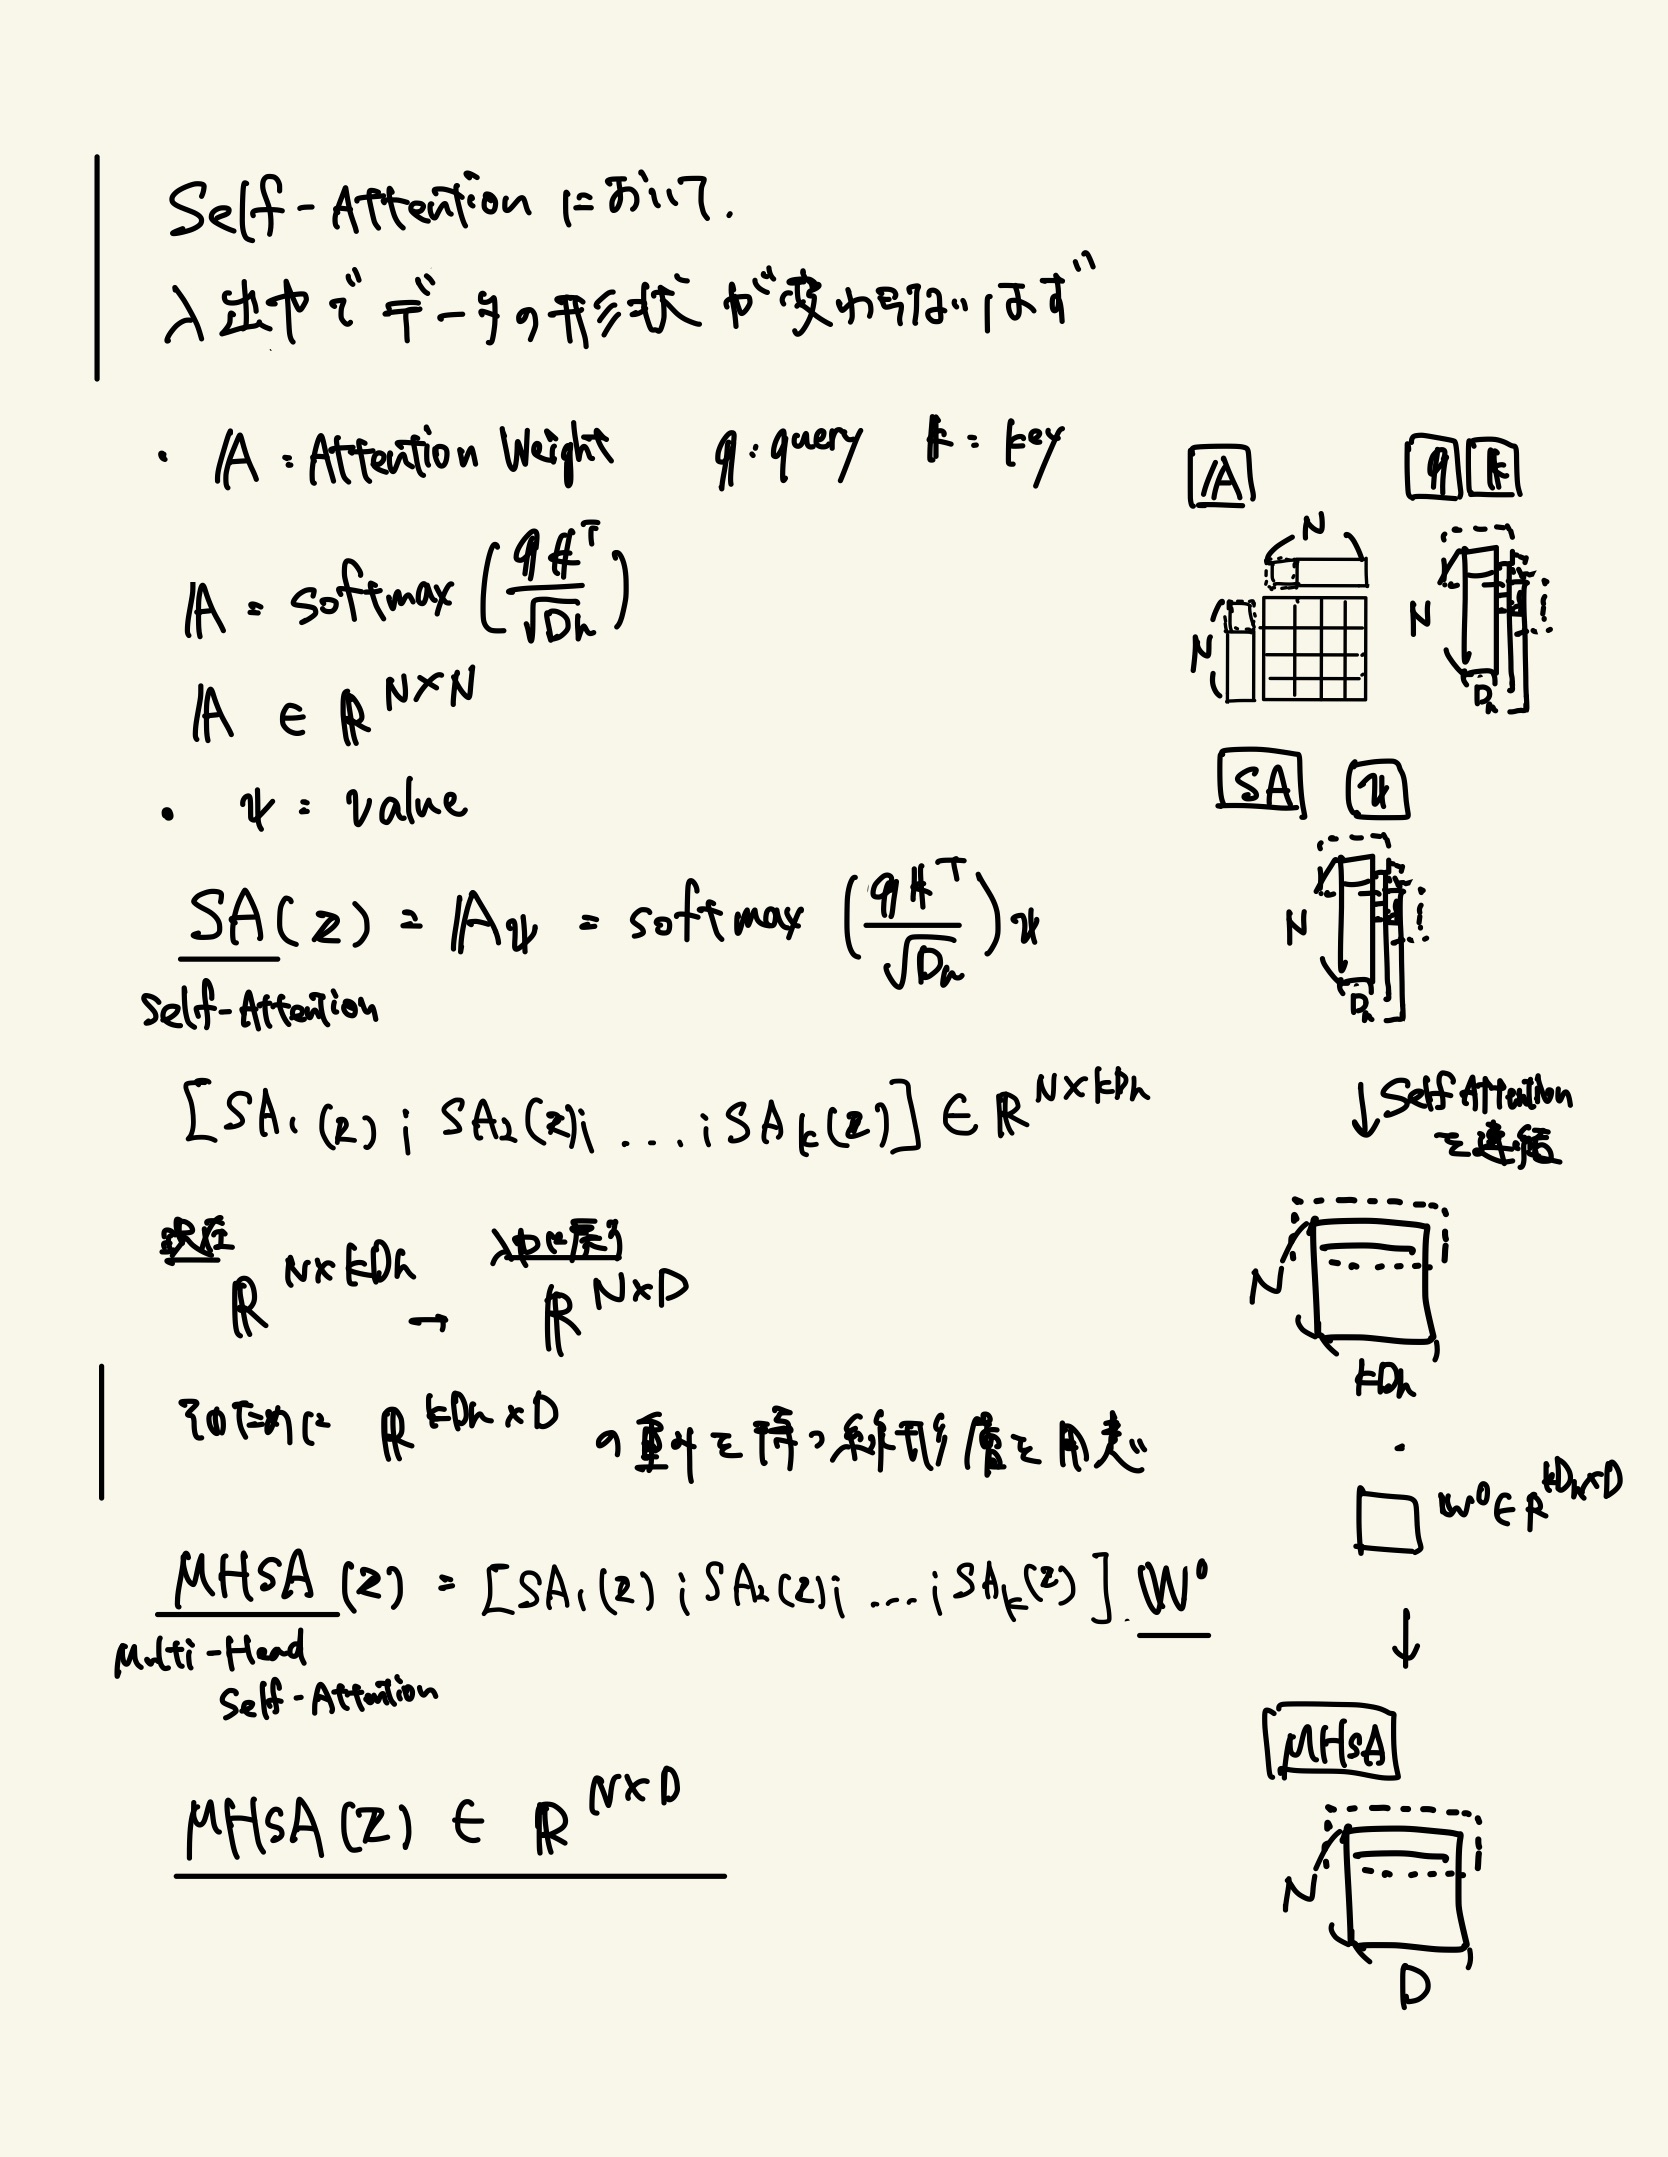 Self-Attention において.
入出力で データの形状が変わらないはず
・ A : Attention Weight  q : query  k : key
A = softmax (qk^T / √Dh)
A ∈ R^{N×N}
・ v : value
SA(z) = Av = softmax (qk^T / √Dh) v
Self-Attention
[SA₁(z) ; SA₂(z) ; ... ; SAk(z)] ∈ R^{N×kDh}
現在 入力に戻す
R^{N×kDh} → R^{N×D}
そのために R^{kDh×D} の重みを持つ線形層を用意
MHSA(z) = [SA₁(z) ; SA₂(z) ; ... ; SAk(z)] W^o
Multi-Head
Self-Attention
MHSA(z) ∈ R^{N×D}
A
q k
N
N
N
Dh
SA v
N
Dh
↓ Self Attention
を連結
N
kDh
・
W^o ∈ R^{kDh×D}
↓
MHSA
N
D